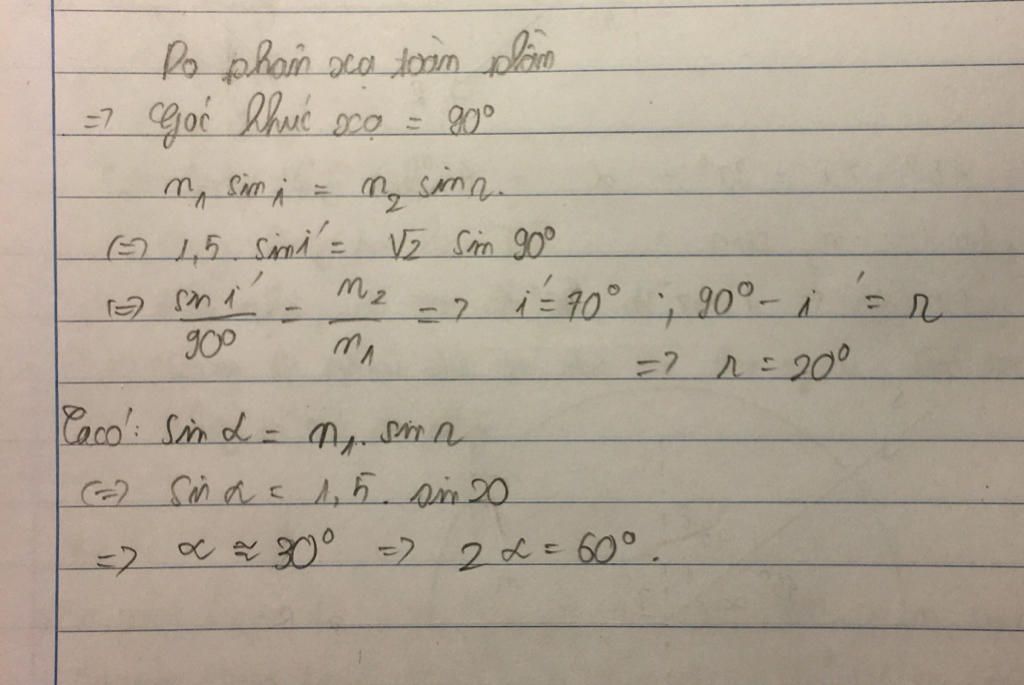 Do phản xạ toàn phần
=> Góc khúc xạ = 90°
n₁ sin i = n₂ sin r.
(=) 1,5. sin i' = √2 sin 90°
(=) sn i' / 90° = n₂ / n₁ => i' = 70° ; 90° - i' = r
=> r = 20°
Ta có: sin α = n₁. sin r
(=) sin α = 1,5. sin 20
=> α ≈ 30° => 2α = 60°.